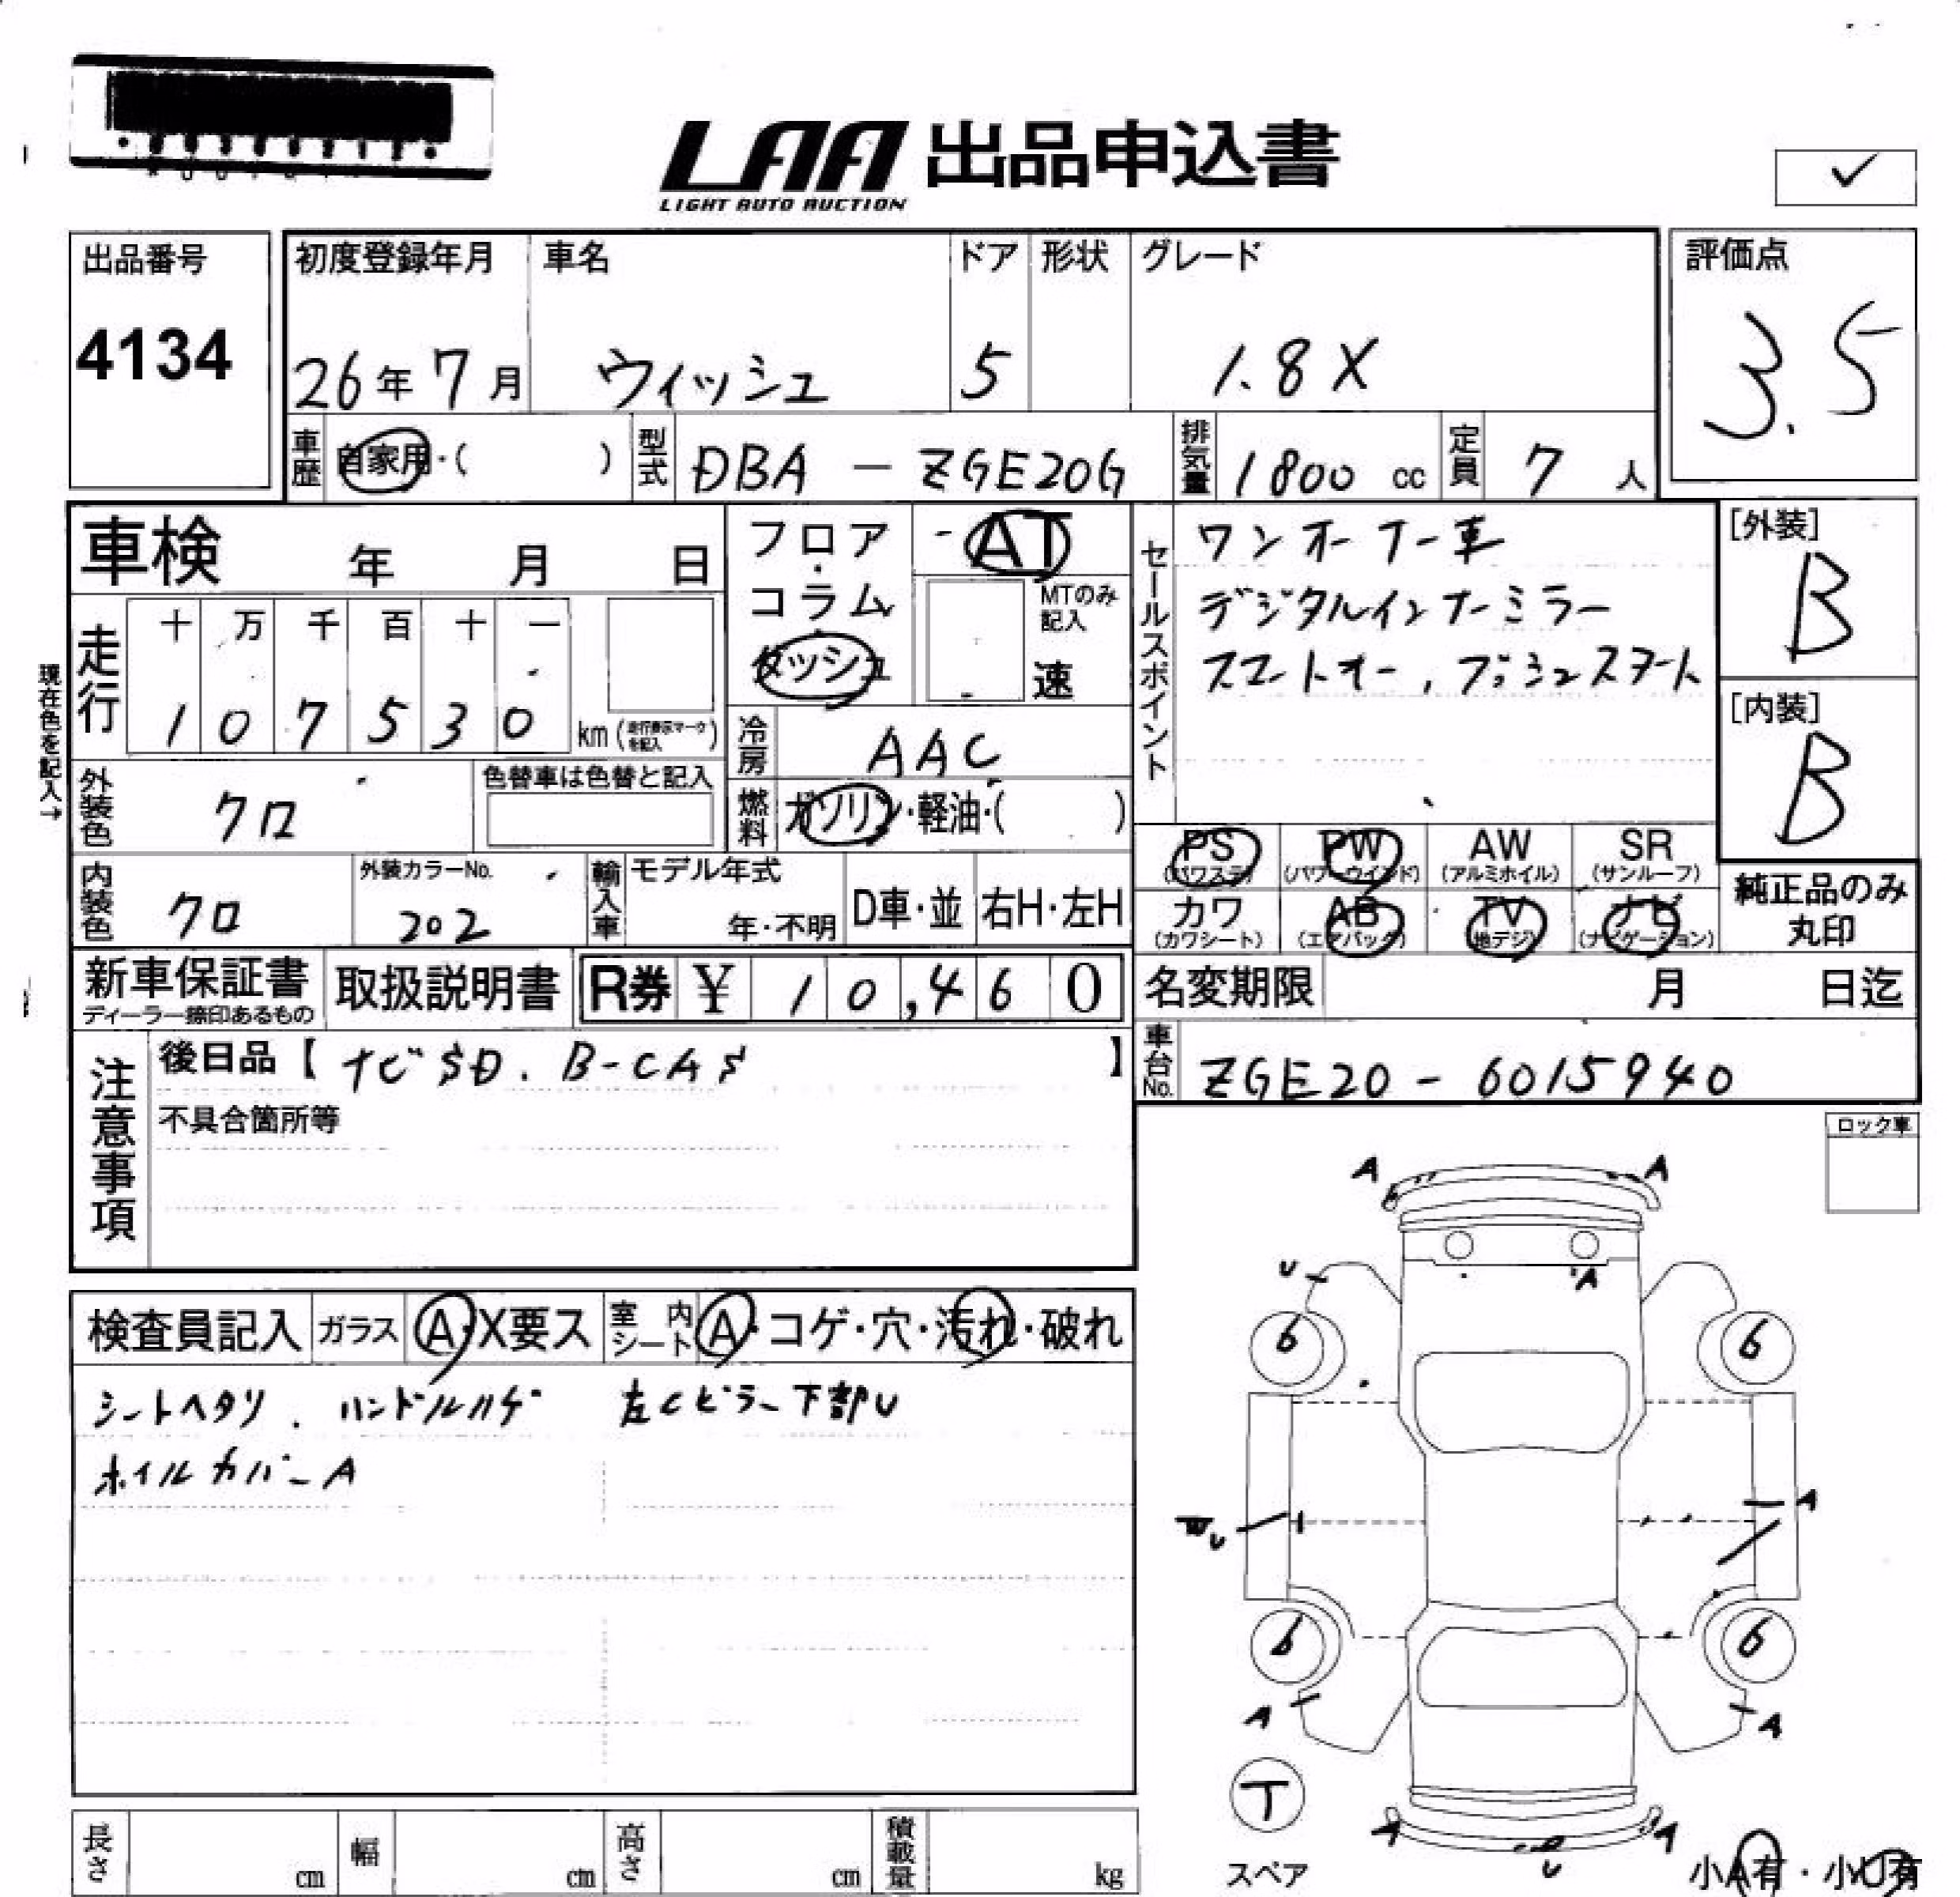 LAA 出品申込書
LIGHT AUTO AUCTION
✓
出品番号
4134
初度登録年月
26年 7月
車名
ウィッシュ
ドア
5
形状
グレード
1.8X
評価点
3.5
車歴
自家用・( )
型式
DBA - ZGE20G
排気量
1800 cc
定員
7 人
車検 年 月 日
フロア・コラム・ダッシュ
AT
MTのみ記入
速
セールスポイント
ワンオーナー車
デジタルインナーミラー
スマートキー, プッシュスタート
[外装]
B
[内装]
B
現在色を記入→
走行
十 万 千 百 十 一
1 0 7 5 3 0
km (走行表示マークを記入)
冷房
AAC
外装色
クロ
色替車は色替と記入
燃料
ガソリン・軽油・( )
PS
(パワステ)
PW
(パワーウインド)
AW
(アルミホイル)
SR
(サンルーフ)
内装色
クロ
外装カラーNo.
202
輸入車
モデル年式
年・不明
D車・並
右H・左H
カワ
(カワシート)
AB
(エアバック)
TV
(地デジ)
ナビ
(ナビゲーション)
純正品のみ
丸印
新車保証書
ディーラー捺印あるもの
取扱説明書
R券 ¥ 10,460
名変期限 月 日迄
注意事項
後日品【ナビSD. B-CAS】
不具合箇所等
車台No.
ZGE20 - 6015940
ロック車
検査員記入
ガラス
A・X要ス
室内シート
A・コゲ・穴・汚れ・破れ
シートヘタリ. ハンドルハゲ 左Cピラー下部U
ホイルカバーA
A A
U A
6 6
A
W U
6 6
A A
T
スペア
A A
U
小A有・小U有
長さ cm
幅 cm
高さ cm
積載量 kg